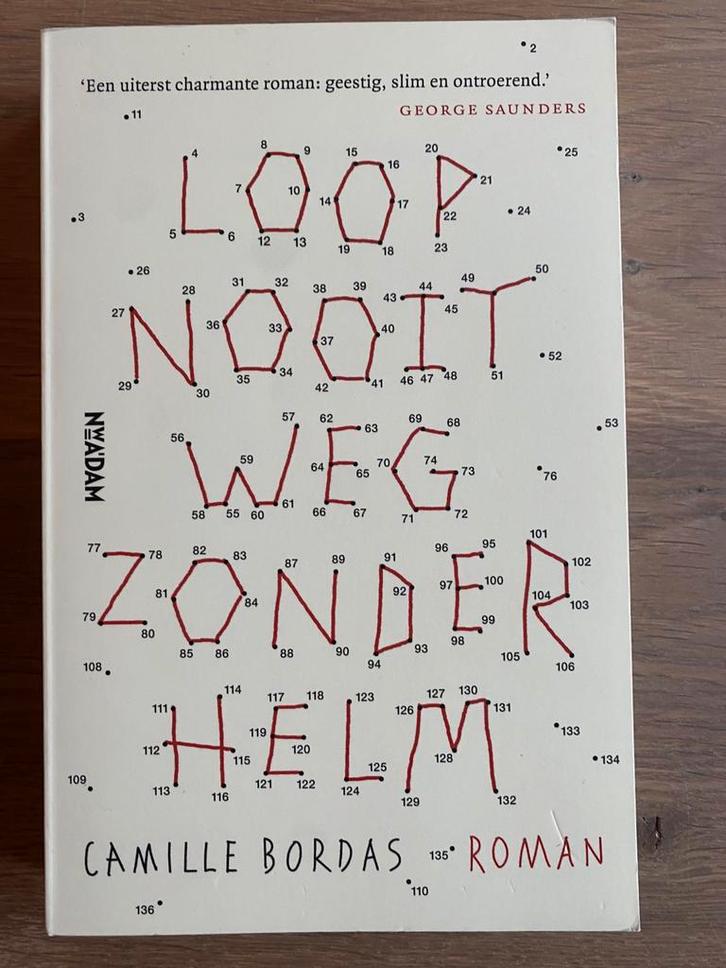 2
'Een uiterst charmante roman: geestig, slim en ontroerend.'
GEORGE SAUNDERS
11
4 8 9 15 16 20 25
LOOP
7 10 14 17 21 22 24
3 5 6 12 13 19 18 23
26
28 31 32 38 39 43 44 45 49 50
NOOIT
27 36 33 37 40 52
29 30 35 34 42 41 46 47 48 51
57 62 63 69 68 53
WEG
56 59 64 65 70 74 73 76
58 55 60 61 66 67 71 72
NW A'DAM
77 78 82 83 87 89 91 96 95 101
ZONDER
81 84 92 97 100 102 104 103
79 80 85 86 88 90 94 93 98 99 105 106
108
111 114 117 118 123 126 127 130 131
HELM
112 115 119 120 128 133 134
109 113 116 121 122 124 125 129 132
CAMILLE BORDAS 135 ROMAN
110
136